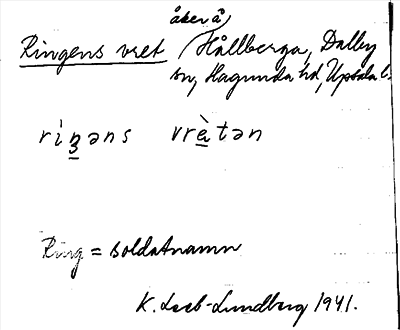 åker å
Ringens vret (Hållberga, Dalby
sn, Hagunda hd, Upsala l.
rìŋ̲əns vrɛ̀tən
Ring = soldatnamn
K. Leeb-Lundberg 1941.